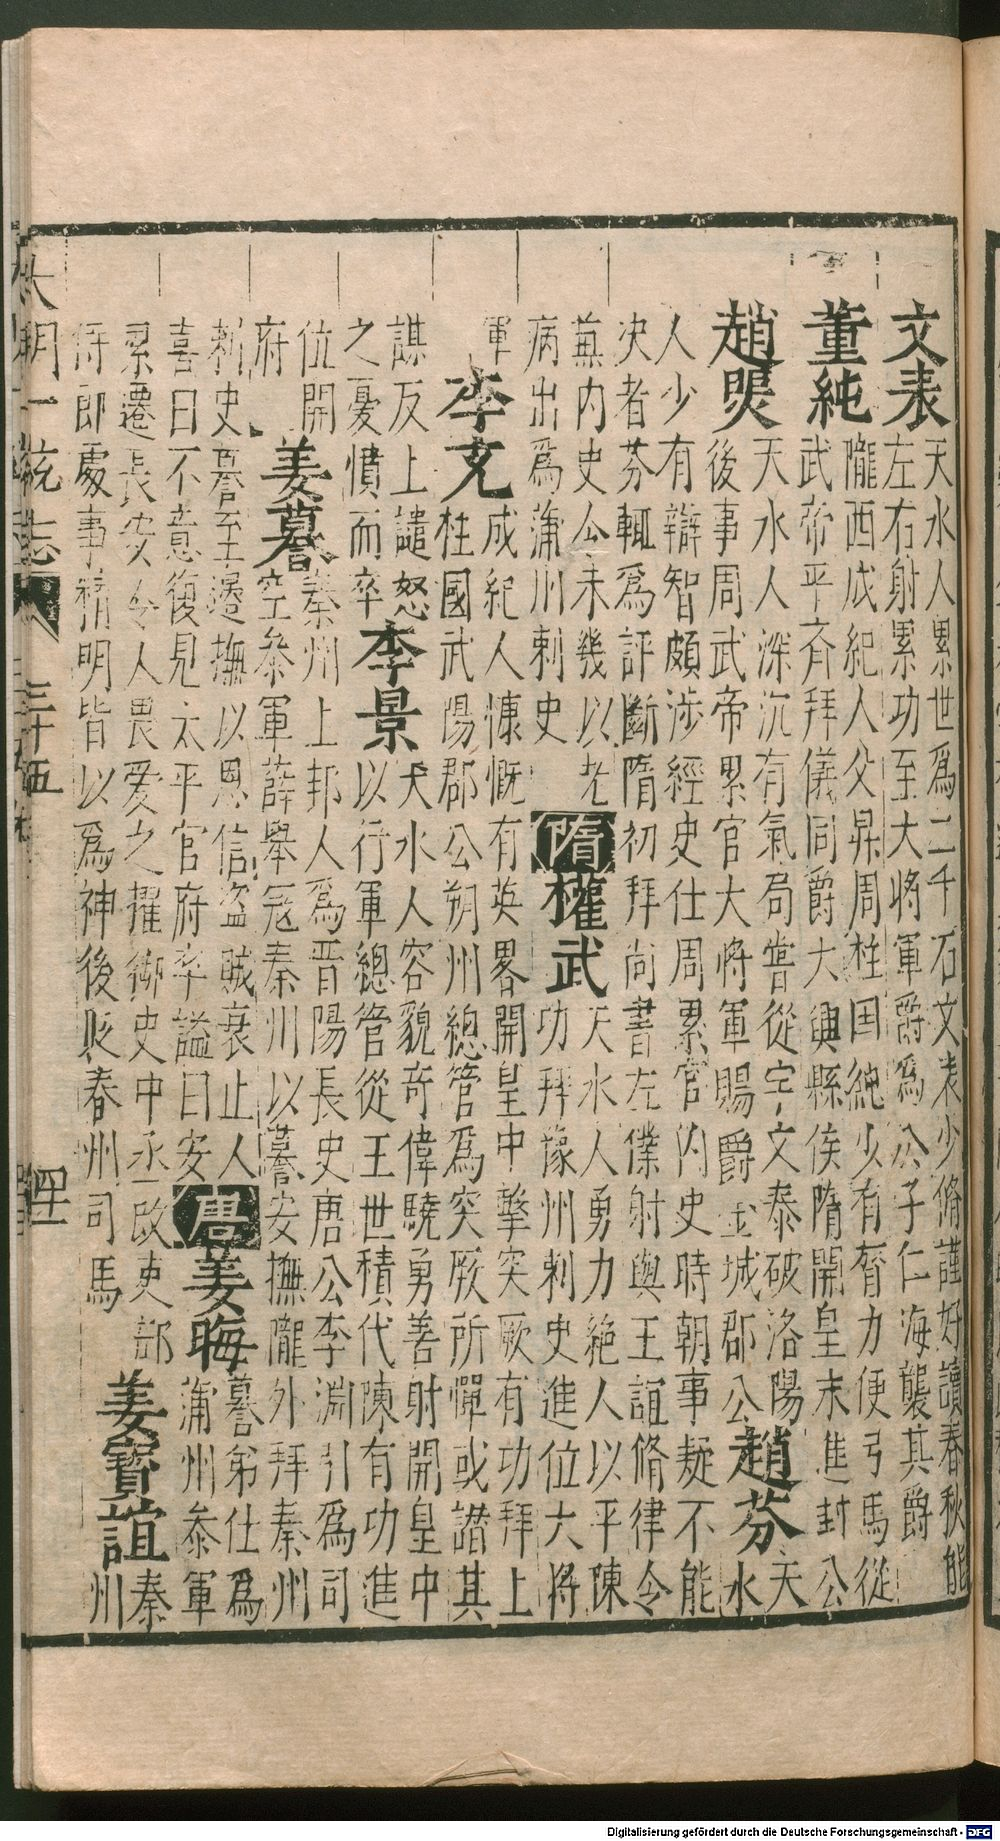 文表 天水人累世爲二千石文表少脩謹好讀春秋能
左右射累功至大將軍爵爲公子仁海襲其爵
董純 隴西成紀人父昇周柱国純少有膂力便弓馬從
武帝平齊拜儀同爵大興縣侯隋開皇末進封公
趙煚 天水人深沉有氣局嘗從宇文泰破洛陽
後事周武帝累官大將軍賜爵金城郡公
趙芬 天
水
人少有辯智頗涉經史仕周累官内史時朝事疑不能
决者芬輒爲評斷隋初拜尚書左僕射與王誼脩律令
兼内史公未幾以老
病出爲蒲州刺史
隋 權武 天水人勇力絶人以平陳
功拜豫州刺史進位大將
軍
李充 成紀人慷慨有英畧開皇中擊突厥有功拜上
柱國武陽郡公朔州總管爲突厥所憚或譖其
謀反上譴怒
之憂憤而卒
李景 天水人容貌奇偉驍勇善射開皇中
以行軍總管從王世積代陳有功進
位開
府
姜謩 秦州上邽人爲晉陽長史唐公李淵引爲司
空叅軍薛舉冦秦川以謩安撫隴外拜秦州
刺史謩至邊撫以恩信盗賊衰止人
喜曰不意復見太平官府卒謚曰安
唐 姜晦 謩弟仕爲
蒲州叅軍
累遷長安令人畏愛之擢御史中丞改吏部
侍郎處事精明皆以爲神後貶春州司馬
姜寶誼 秦
州
大明一統志 三十五 四十一
Digitalisierung gefördert durch die Deutsche Forschungsgemeinschaft - DFG